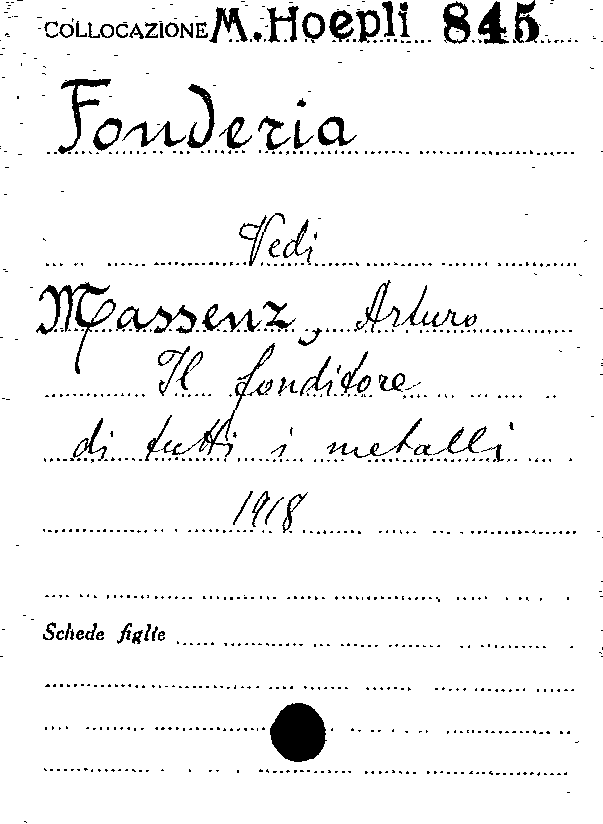 COLLOCAZIONE M. Hoepli 845
Fonderia
Vedi
Massenz, Arturo
Il fonditore
di tutti i metalli
1918
Schede figlie